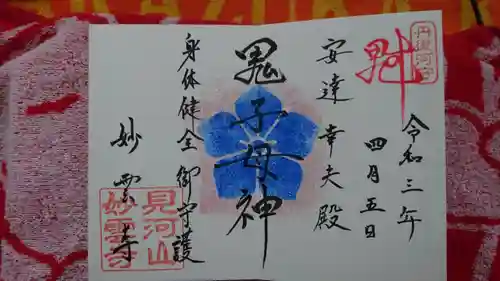 丹後河守
魁
令和三年
四月五日
安達幸夫殿
鬼子母神
身体健全御守護
妙雲寺
見河山
妙雲寺